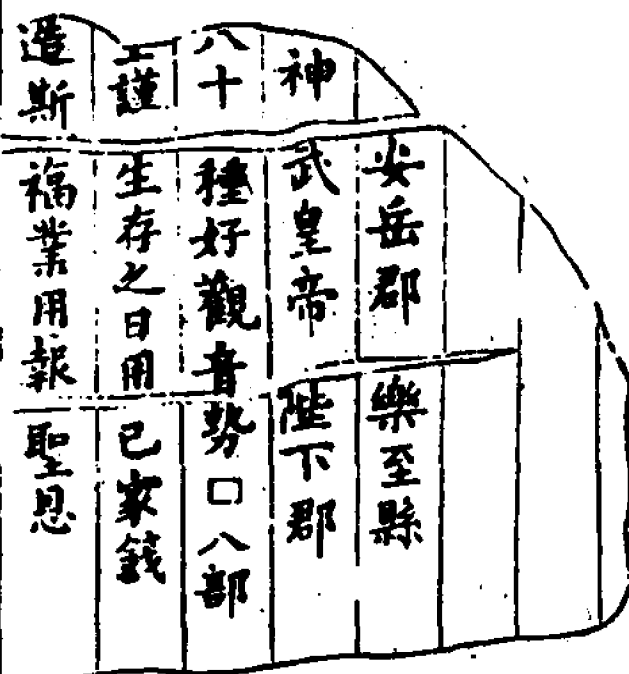 安岳郡樂至縣
神武皇帝陛下郡
八十種好觀音勢□八部
謹生存之日用己家錢
造斯福業用報聖恩